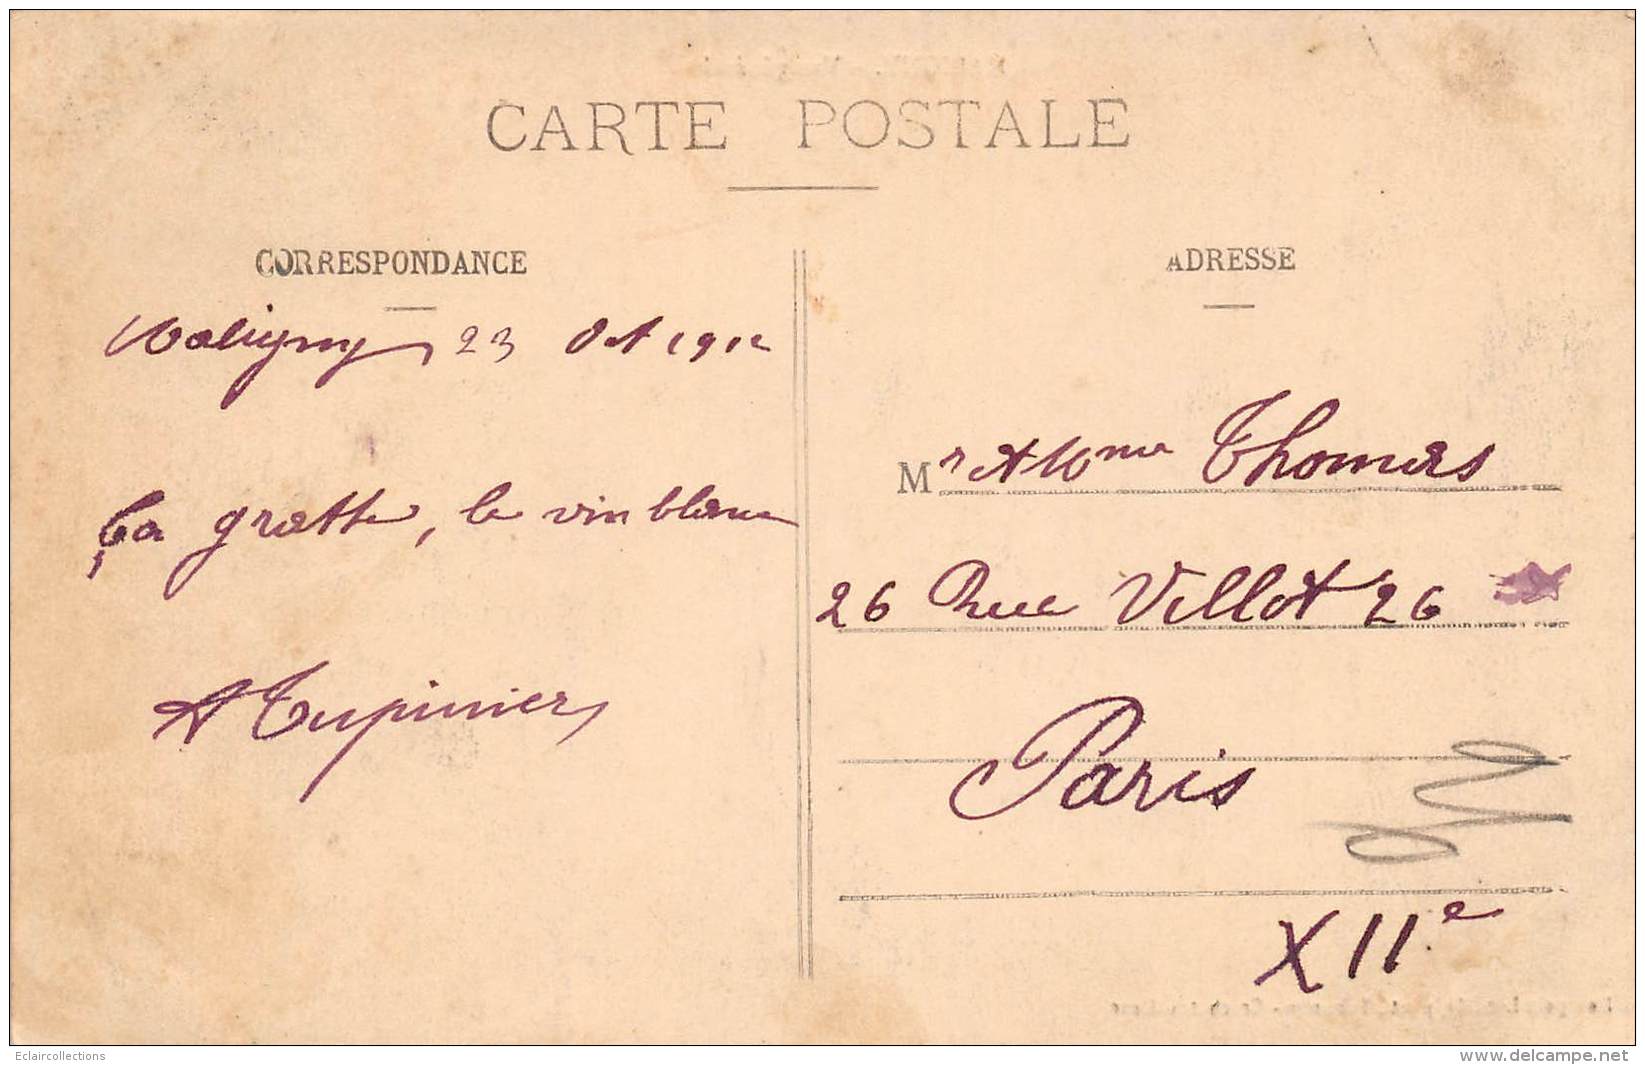 CARTE POSTALE
CORRESPONDANCE
Maligny 23 Oct 1912
Ça gratte, le vin blanc
A Tupinier
ADRESSE
Mr et Mme Thomas
26 Rue Villot 26
Paris
XIIe
Eclaircollections
www.delcampe.net